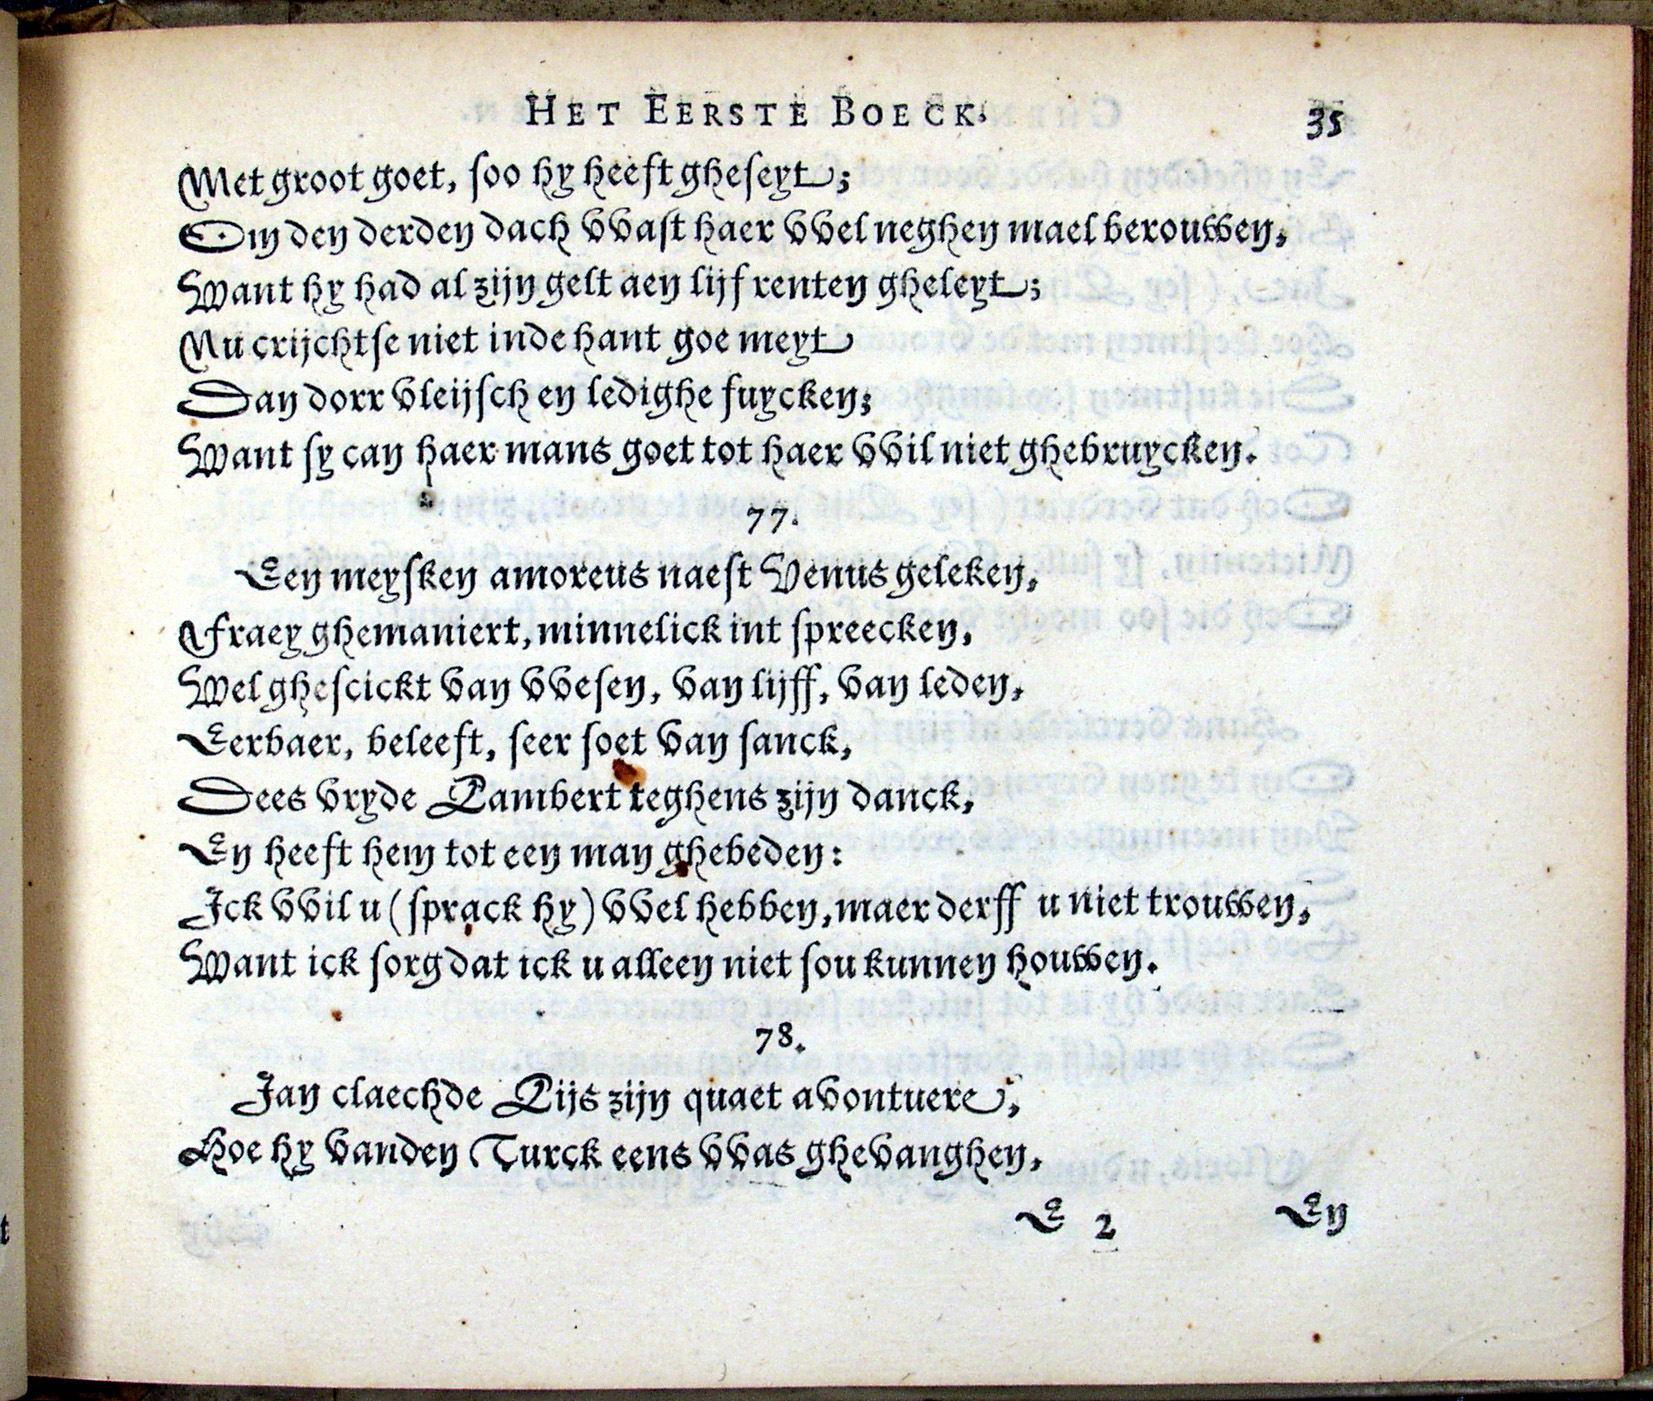 HET EERSTE BOECK. 35
Met groot goet, soo hy heeft gheseyt;
Om den derden dach vvast haer vvel neghen mael berouwen,
Want hy had al zijn gelt aen lijf renten gheleyt;
Nu crijchtse niet inde hant goe meyt
Dan dorr vleijsch en ledighe fuycken;
Want sy can haer mans goet tot haer vvil niet ghebruycken.
77.
Een meysken amoreus naest Venus geleken,
Fraey ghemaniert, minnelick int spreecken,
Wel ghescickt van vvesen, van lijff, van leden,
Eerbaer, beleeft, seer soet van sanck,
Dees vryde Lambert teghens zijn danck,
En heeft hem tot een man ghebeden:
Ick vvil u (sprack hy) vvel hebben, maer derff u niet trouwen,
Want ick sorg dat ick u alleen niet sou kunnen houwen.
78.
Jan claechde Lijs zijn quaet avontuere,
Hoe hy vanden Turck eens vvas ghevanghen,
E 2 En